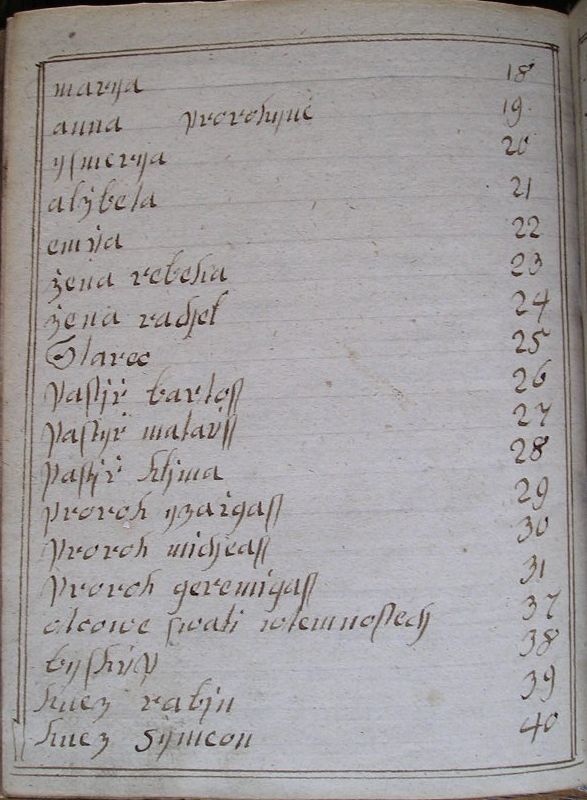 marya 18
anna prorokyně 19
yſmerya 20
alžbeta 21
emija 22
žena rebeka 23
žena rachel 24
Starec 25
Paſtýř bartoſſ 26
Paſtyř mataúſſ 27
Paſtýř klyma 28
Prorok yzaigaſſ 29
Prorok micheaſſ 30
Prorok geremigaſſ 31
otcowe ſwati wtemnoſtech 37
byſkúp 38
knez rabín 39
knez Symeon 40